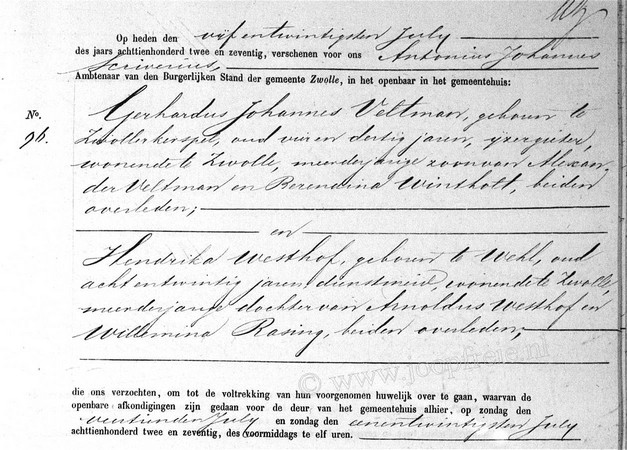 Op heden den vijfentwintigsten July
des jaars achttienhonderd twee en zeventig, verschenen voor ons Antonius Johannes
Scriverius,
Ambtenaar van den Burgerlijken Stand der gemeente Zwolle, in het openbaar in het gemeentehuis:
No.
96.
Gerhardus Johannes Veltman, geboren te
Zwollerkerspel, oud vier en dertig jaren, ijzergieter,
wonende te Zwolle, meerderjarige zoon van Alexan
der Veltman en Berendina Wintholt, beiden
overleden;
en
Hendrika Westhof, geboren te Wehl, oud
achtentwintig jaren, dienstmeid, wonende te Zwolle,
meerderjarige dochter van Arnoldus Westhof en
Willemina Rasing, beiden overleden;
© www.joopfreie.nl
die ons verzochten, om tot de voltrekking van hun voorgenomen huwelijk over te gaan, waarvan de
openbare afkondigingen zijn gedaan voor de deur van het gemeentehuis alhier, op zondag den
veertienden July en zondag den eenentwintigsten July
achttienhonderd twee en zeventig, des voormiddags te elf uren.